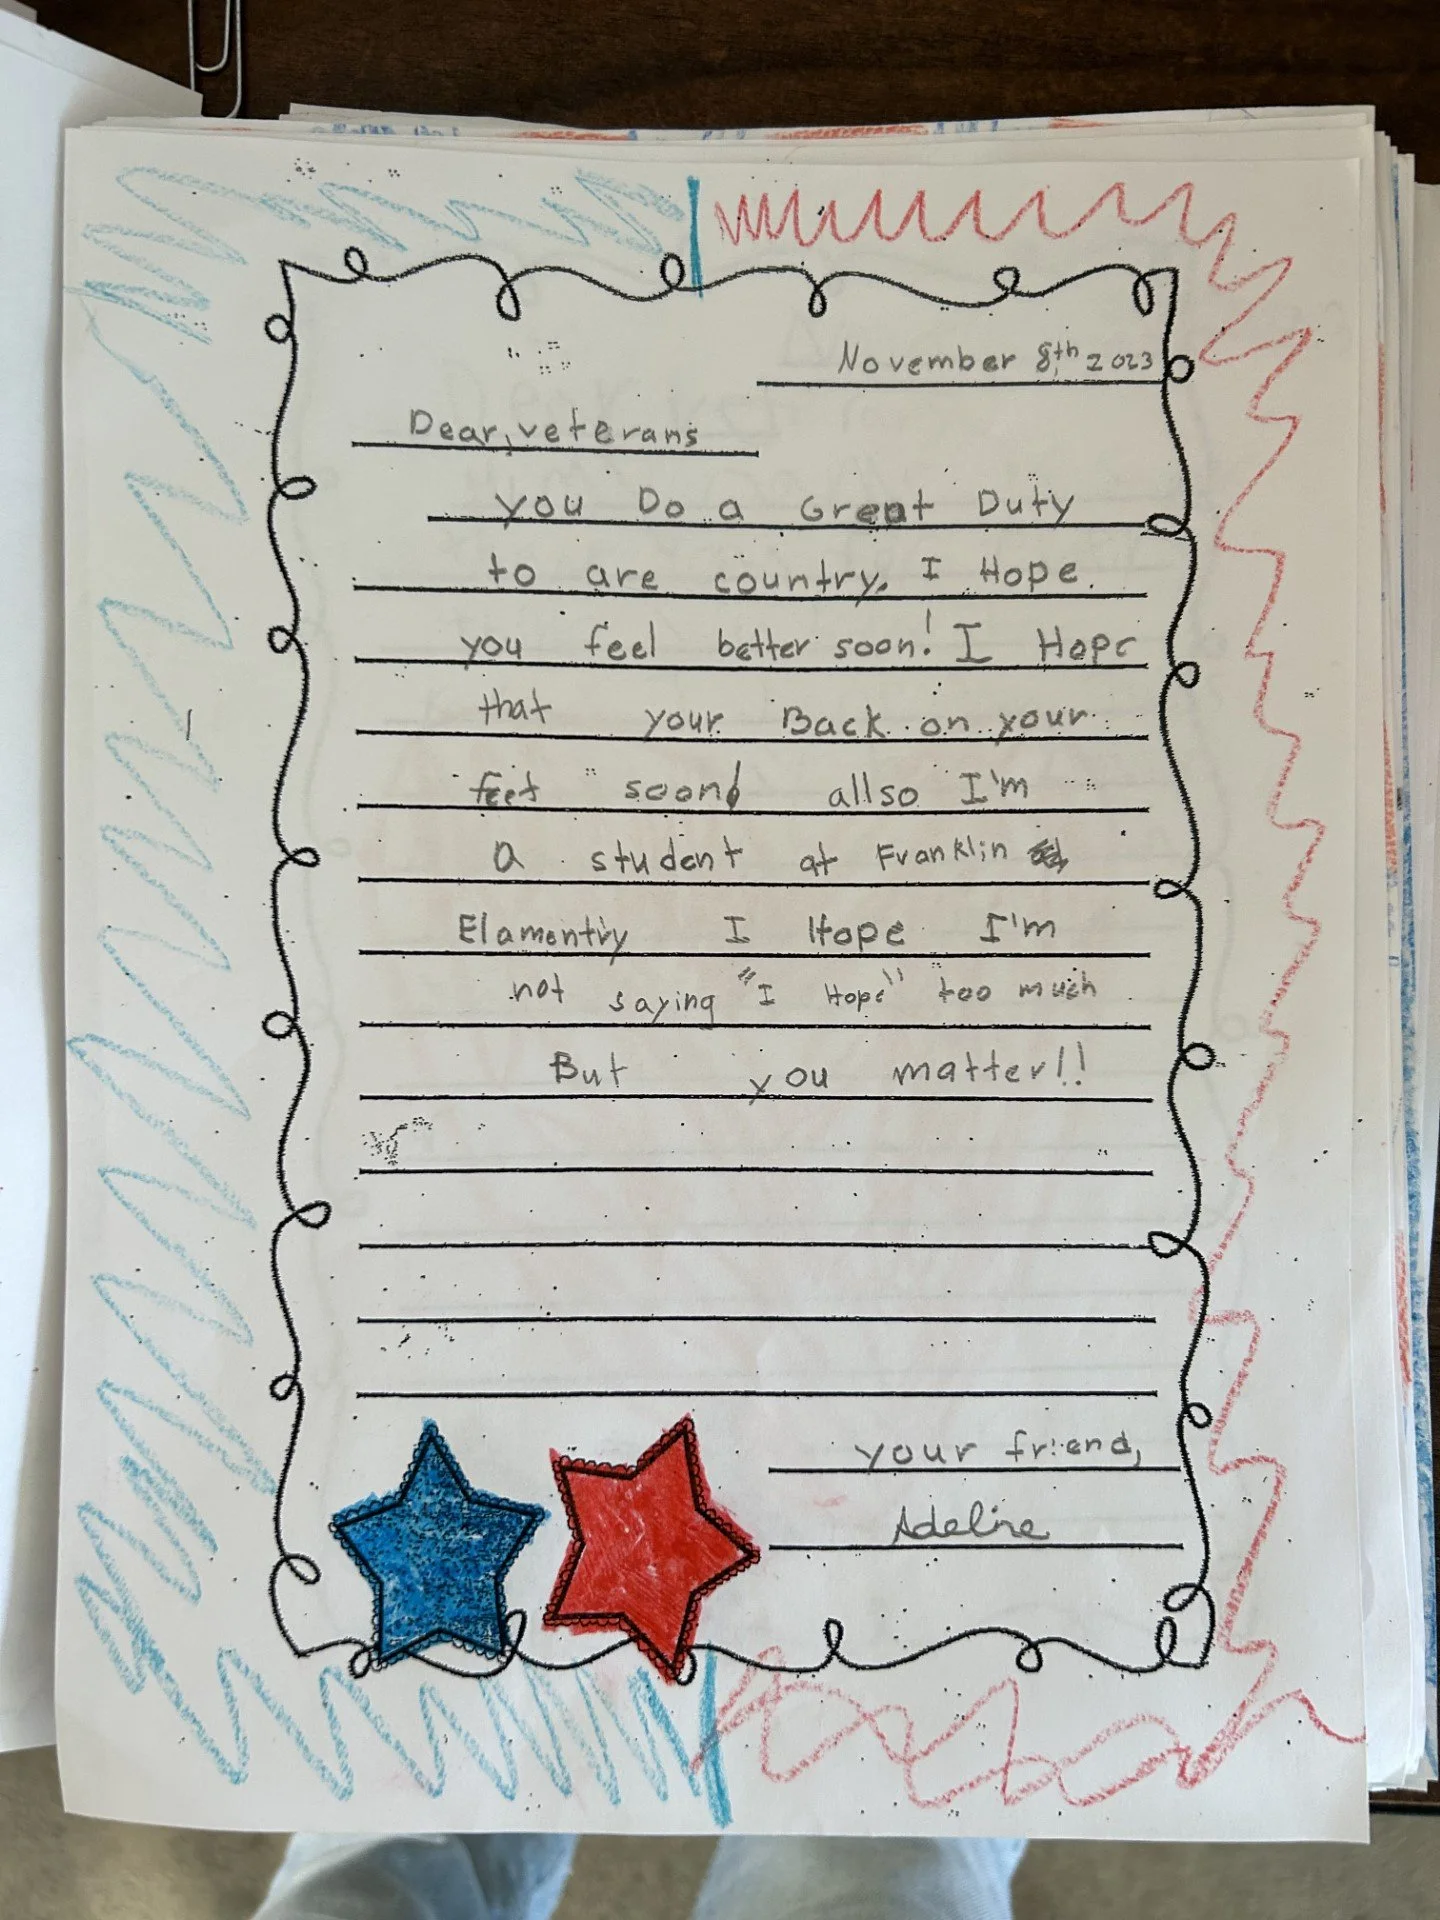 November 8th, 2023
Dear, veterans
you Do a Great Duty
to are country. I Hope
you feel better soon! I Hope
that your Back on your
feet soon! allso I'm
a student at Franklin
Elamentry I Hope I'm
not saying "I Hope" too much
But you matter!!
your friend,
Adeline